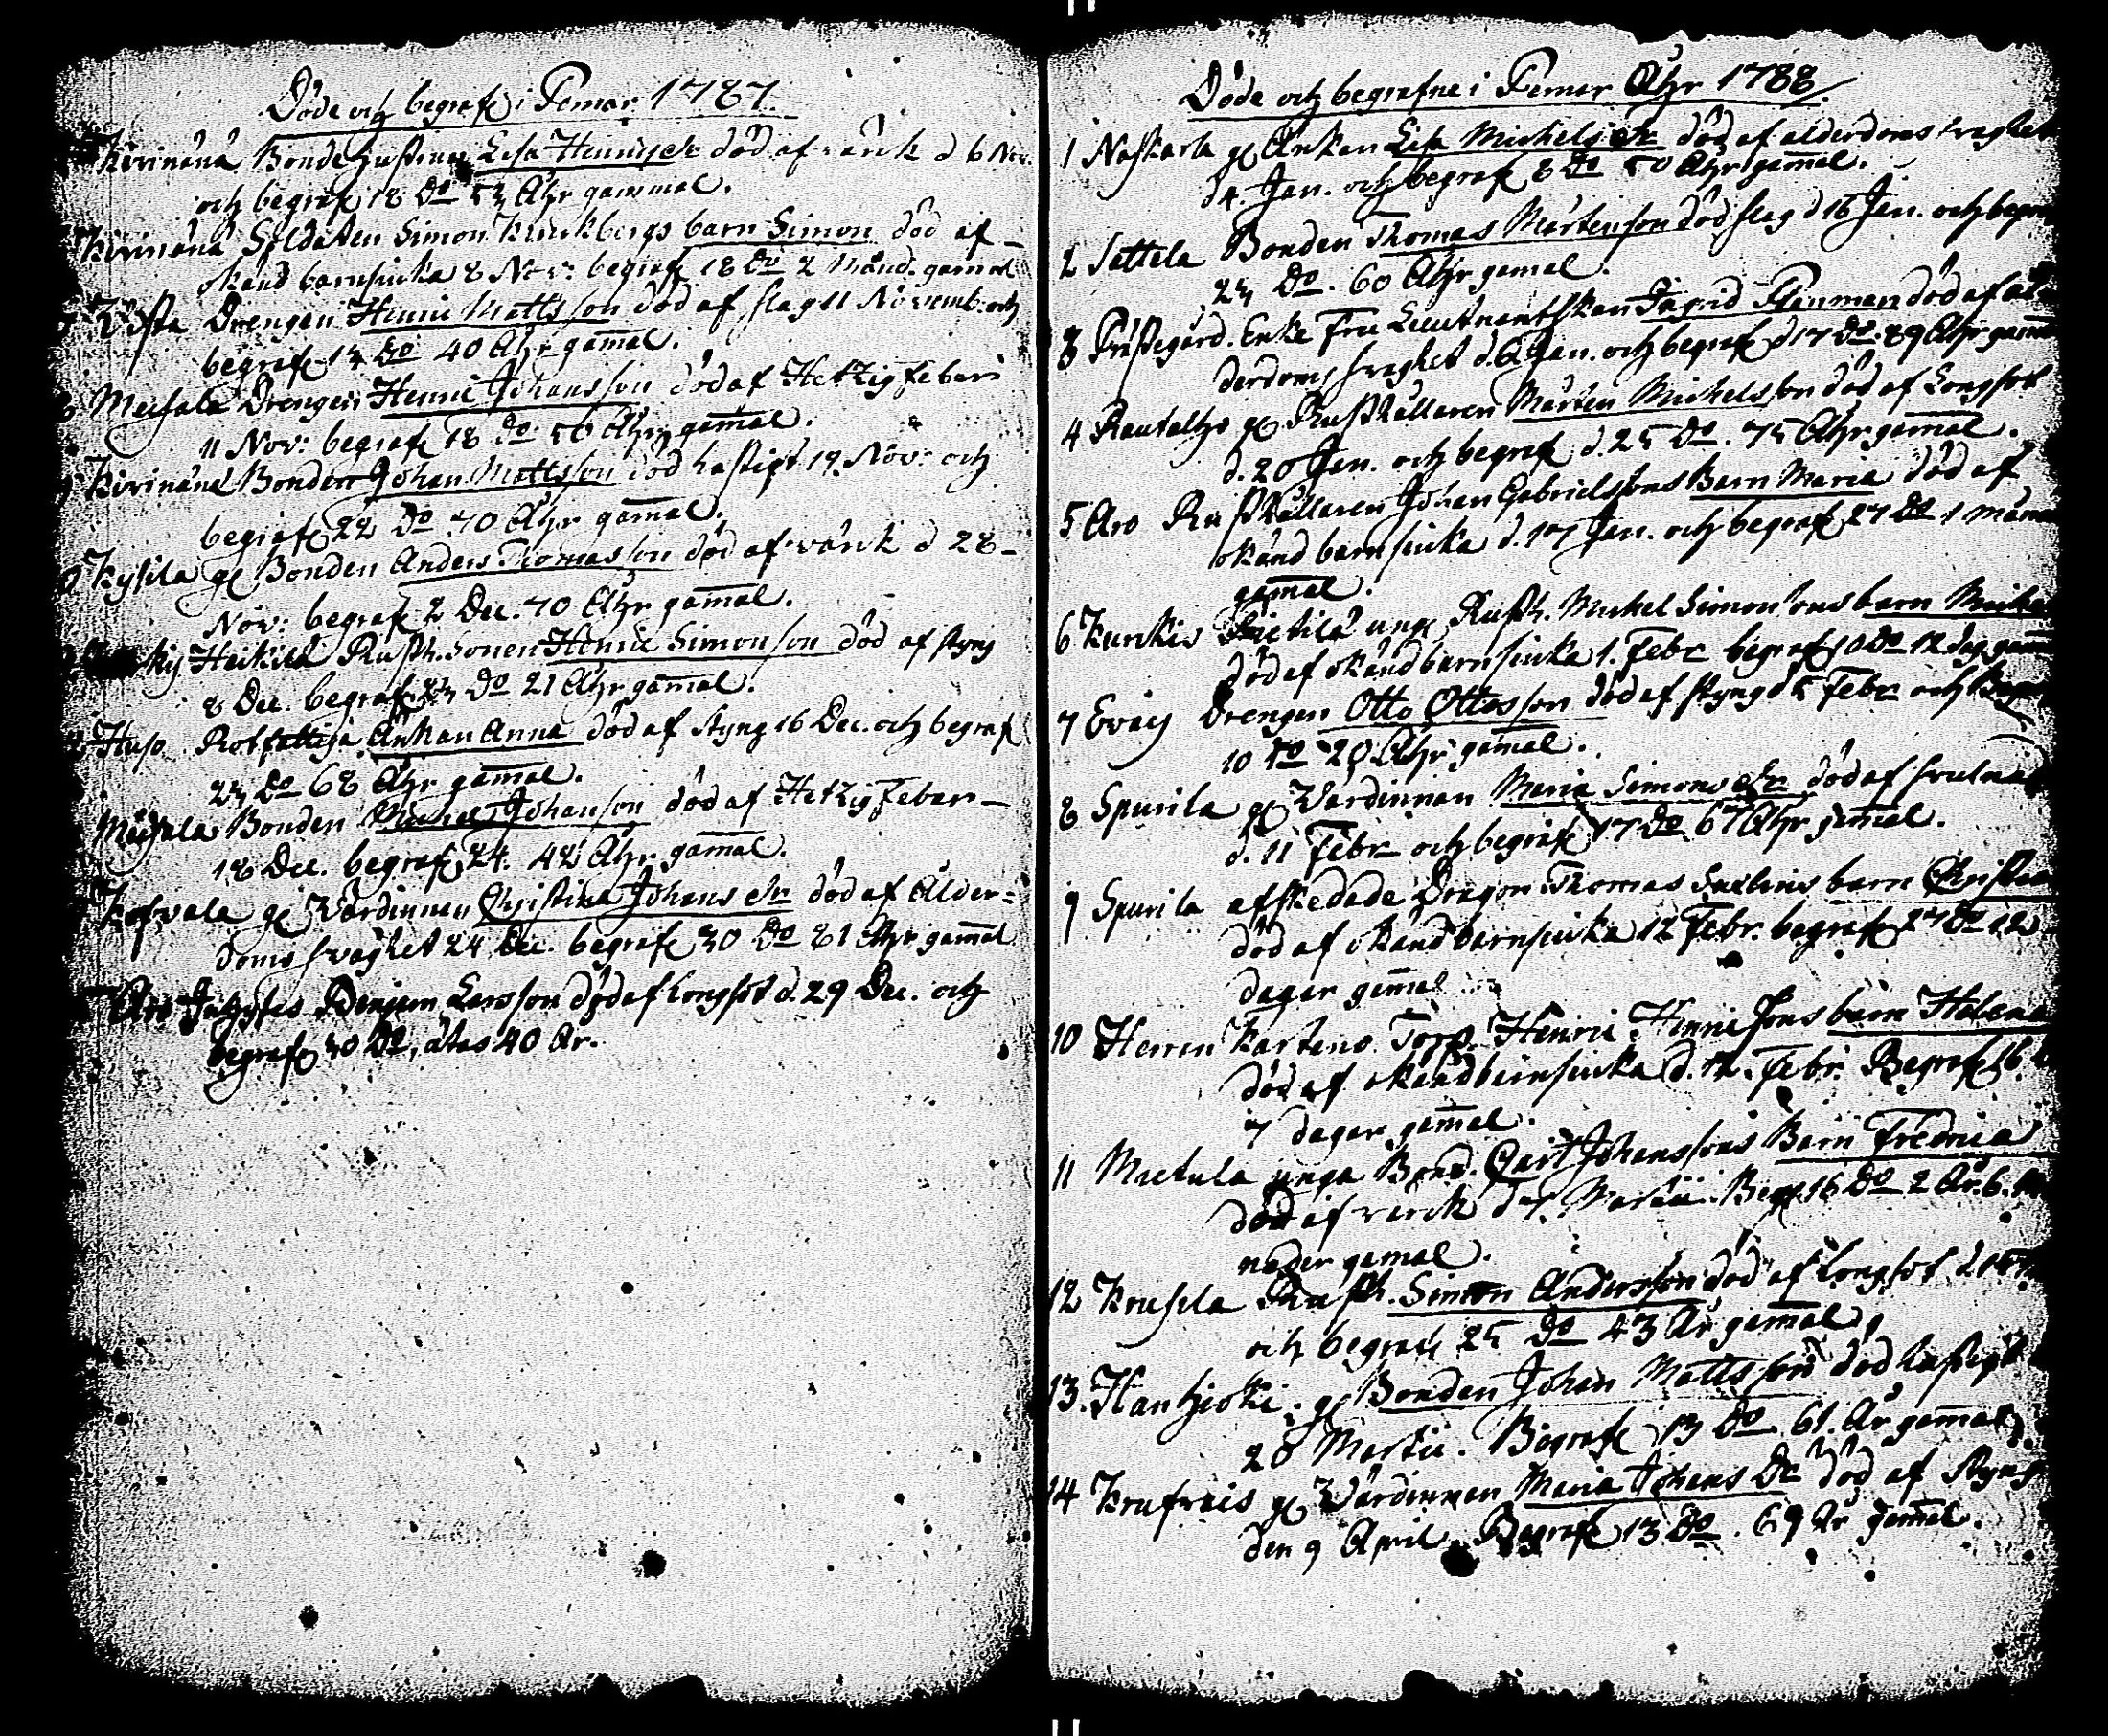 Döde och begrafn i Pemar 1787.
Kirinänä Bonde hustrun Lisa Henrichsdr död af värk d 6 Nov.
och begrafn 18 Do 53 Åhr gammal.
Kirinänä Soldaten Simon barn Simon död af
okänd barnsiuka 8 Nov: begrafn 18 Do 2 Månd. gamal
Vista Drengen Henric Mattsson död af slag 11 Novemb: och
begrafn 18 Do 40 Åhr gamal.
Meisala Drengen Henric Johansson död af Hetzig feber
11 Nov: begrafn 18 do 50 Åhr gamal.
Kirinänä Bonden Johan Mattsson död hastigt 19 Nov: och
begrafn 22 Do 70 Åhr gamal.
Kysila gl Bonden Anders Thomasson död af värk d 28
Nov: begrafn 2 Dec. 70 Åhr gamal.
Heikilä Rusth. Sonen Henric Simonson död af styng
8 Dec. begrafn Do 21 Åhr gamal.
Rotfattiga Änkan Anna död af styng 16 Dec. och begrafn
23 Do 68 Åhr gamal.
Meisala Bonden Michel Johanson död af Hetzig Feber
18 Dec. begrafn 24. 42 Åhr gamal.
gl Värdinnan Christina Johansdr död af Ålder=
doms svaghet 24 Dec. begrafn 30 Do 81 Åhr gamal
Aro Benjam Larsson död af longsot d. 29 Dec. och
begrafn 30 Do, ätas 40 År.
Döde och begrafne i Pemar Åhr 1788.
1 Naskarla gl Änkan Lisa Michelsdr död af ålderdoms svaghet
d 4. Jan. och begrafn 8 Do 50 Åhr gamal.
2 Sattela Bonden Thomas Mårtenson död slag d 16 Jan. och begra
23 Do. 60 Åhr gamal.
3 Prästegård. Enke Fru Lieutnantskan Ingrid död af ål
derdoms svaghet d. 6 Jan. och begrafn d 17 Do 89 Åhr gamal
4 gl Rusthållaren Mårten Michelsson död af Longsot
d. 20 Jan. och begrafn d. 25 Do. 75 Åhr gamal.
5 Aro Rusthållaren Johan Gabrielssons Barn Maria död af
okänd barnsiuka d. 17 Jan. och begrafn 27 Do 1 månad
gamal.
6 Kurkis unge Rusth. Michel Simonsons barn Michel
död af okänd barnsiuka 1. Febr begrafn 10 Do 12 dag. gam
7 Evais Drengen Otto Ottosson död af styng d 5 Febr och Begr
10 Do 20 Åhr gamal.
8 Spurila gl Värdinnan Maria Simonsdr död af
d. 11 Febr och begrafn 17 Do 67 Åhr gamal.
9 Spurila afskedade Dragon Thomas barn Christina
död af okänd barnsiuka 12 Febr. begrafn 27 Do 12
dagar gamal
10 Herren Kartano Torp. Henric Henricsons barn Helena
död af okänd barnsiuka d. 12. Febr. Begrafn 16
7 dagar gamal.
11 Mietula unga Bond. Carl Johanssons Barn Fredrica
död af värck d 7. Martii. Begr. 16 Do 2 År. 6. må
nader gamal.
12 Krusila Rusth. Simon Andersson död af longsot d.
och begrafn 25 Do 43 År gamal.
13. gl Bonden Johan Mattsson död hastigt
20 Martii. Begrafn 13 Do 61. År gamal.
14 gl Värdinnan Maria Johans Dr död af styng
den 9 April. Begrafn 13 Do. 69 År gamal.